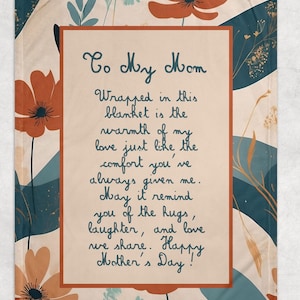 To My Mom
Wrapped in this
blanket is the
warmth of my
love just like the
comfort you've
always given me.
May it remind
you of the hugs,
laughter, and love
we share. Happy
Mother's Day!